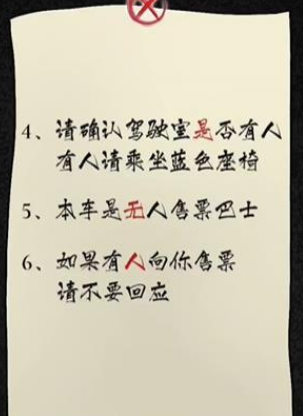 4、请确认驾驶室是否有人
有人请乘坐蓝色座椅
5、本车是无人售票巴士
6、如果有人向你售票
请不要回应